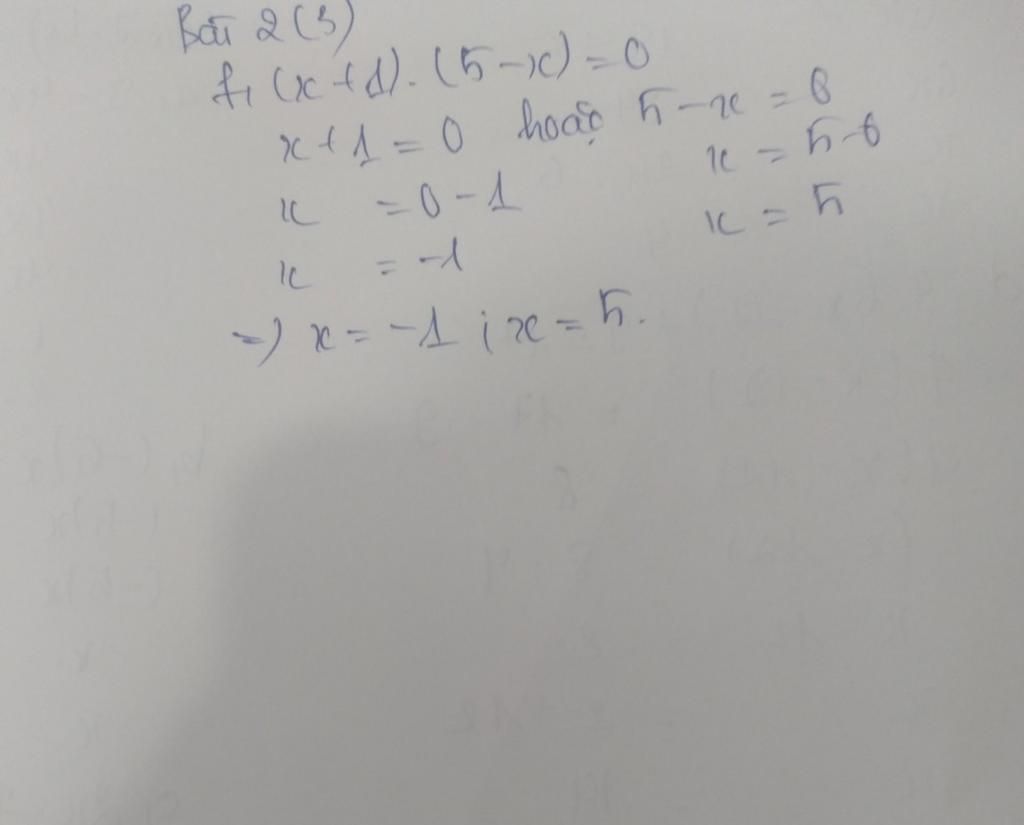 Bài 2 (3)
f, (x + 1) . (5 - x) = 0
x + 1 = 0 hoặc 5 - x = 0
x = 0 - 1 x = 5 - 0
x = -1 x = 5
=> x = -1 ; x = 5.